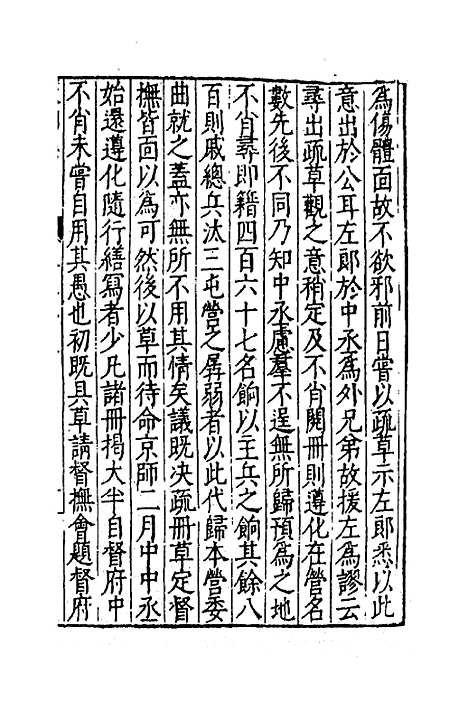 為傷體面故不欲邪前日嘗以疏草示左郎悉以此
意出於公耳左郎於中丞為外兄弟故援左為謬云
尋出疏草觀之意稍定及不肖閱冊則遵化在營名
數先後不同乃知中丞慮羣不逞無所歸預為之地
不肖尋即籍四百六十七名餉以主兵之餉其餘八
百則戚總兵汰三屯營之孱弱者以此代歸本營委
曲就之蓋亦無所不用其情矣議既決疏冊草定督
撫皆面以為可然後以草而待命京師二月中中丞
始還遵化隨行繕寫者少凡諸冊揭大半自督府中
不肖未嘗自用其愚也初既具草請督撫會題督府